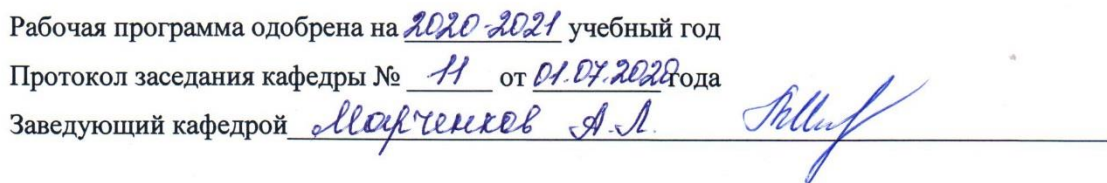 Рабочая программа одобрена на 2020-2021 учебный год
Протокол заседания кафедры № 11 от 01.07.2020 года
Заведующий кафедрой Марченков А.Л.